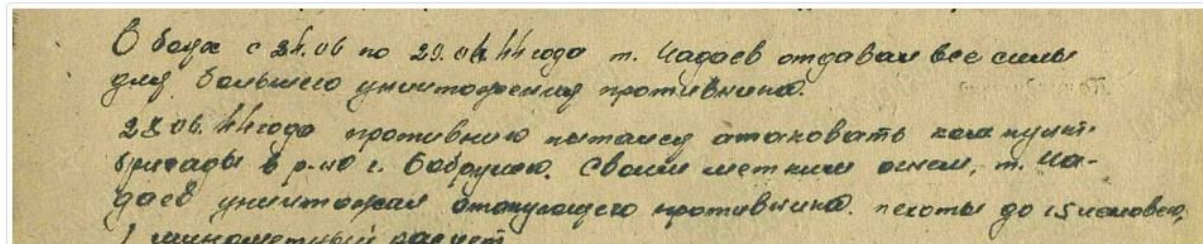 В боях с 24.06 по 29.06.44 года т. Чадаев отдавал все силы
для большего уничтожения противника.
28.06.44 года противник пытался атаковать ком. пункт
бригады в р-не г. Бобруйск. Своим метким огнем, т. Ча-
даев уничтожал атакующего противника. пехоты до 15 человек,
1 минометный расчет